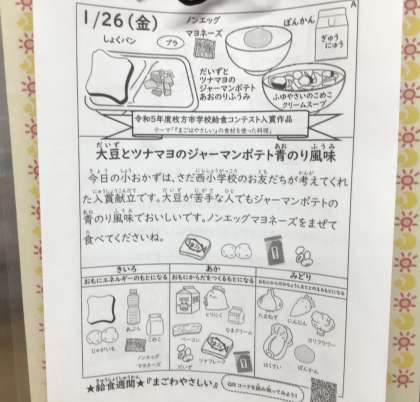 A
1/26(金)
ノンエッグ
マヨネーズ
ぽんかん
ぎゅう
にゅう
しょくパン
プラ
だいずと
ツナマヨの
ジャーマンポテト
あおのりふうみ
ふゆやさいのこめこ
クリームスープ
令和5年度枚方市学校給食コンテスト入賞作品
テーマ「『まごはやさしい』の食材を使った料理」
大豆とツナマヨのジャーマンポテト青のり風味
今日の小おかずは、さだ西小学校のお友だちが考えてくれ
た入賞献立です。大豆が苦手な人でもジャーマンポテトの
青のり風味でおいしいです。ノンエッグマヨネーズをまぜて
食べてくださいね。
きいろ
おもにエネルギーのもとになる
あぶら
こめこ
じゃがいも
ノンエッグ
マヨネーズ
あか
おもにからだをつくるもとになる
とりにく
なまクリーム
ベーコン
だいず
ツナフレーク
みどり
おもにからだのちょうしをととのえるもとになる
たまねぎ
にんじん
カリフラワー
はくさい
ぽんかん
★給食週間★『まごわやさしい』
QRコードを読み取ってみよう!